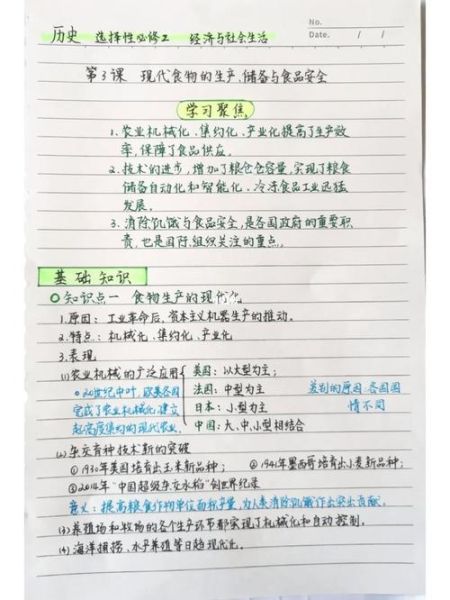 No.
Date. / /
历史 选择性必修工 经济与社会生活
第3课 现代食物的生产、储备与食品安全
学习聚焦
1.农业机械化、集约化、产业化提高了生产效
率,保障了食品供应。
2.技术的进步,增加了粮仓仓容量,实现了粮食
储备自动化和智能化、冷冻食品工业迅猛
发展。
3.消除饥饿与食品安全,是各国政府的重要职
责,也是国际组织关注的重点。
基础知识
知识点一 食物生产的现代化
1.原因:工业革命后,资本主义机器生产的推动。
2.特点:机械化、集约化、产业化
3.表现
(1)农业机械的广泛应用
美国:以大型为主;
20世纪中叶,欧美各国
法国:中型为主
差别的原因:各国国
完成了农业机械化,建立
日本:小型为主
情不同
起高度集约的现代农业。
中国:大、中、小型相结合
(2)杂交育种技术新的突破
①1930年美国培育出玉米新品种;②1941年墨西哥培育出小麦新品种;
③2014年“中国超级杂交水稻”创世界纪录
意义:提高粮食作物单位面积产量,为人类消除饥饿作出突出贡献。
(3)养殖场和牧场的各个生产环节都实现了机械化和自动控制。
(4)海洋捕捞、水产养殖等日趋现代化。